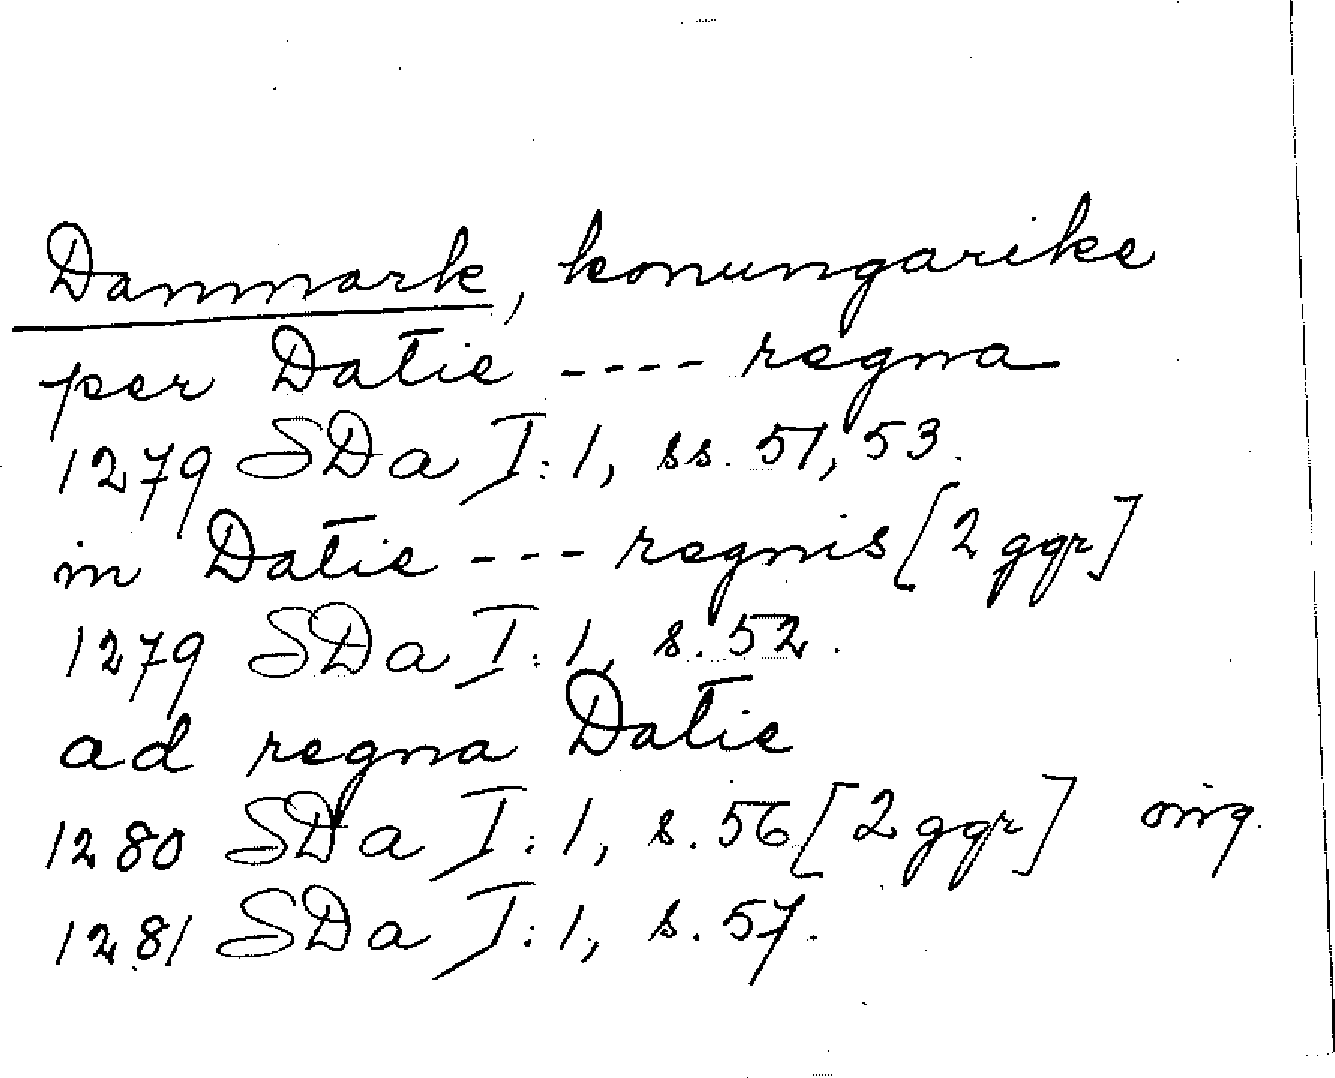 Danmark, konungarike
per Datie ---- regna
1279 SDa I:1, ss. 51, 53.
in Datie --- regnis [2 ggr]
1279 SDa I:1, s. 52.
ad regna Datie
1280 SDa I:1, s. 56 [2 ggr]
1281 SDa I:1, s. 57.